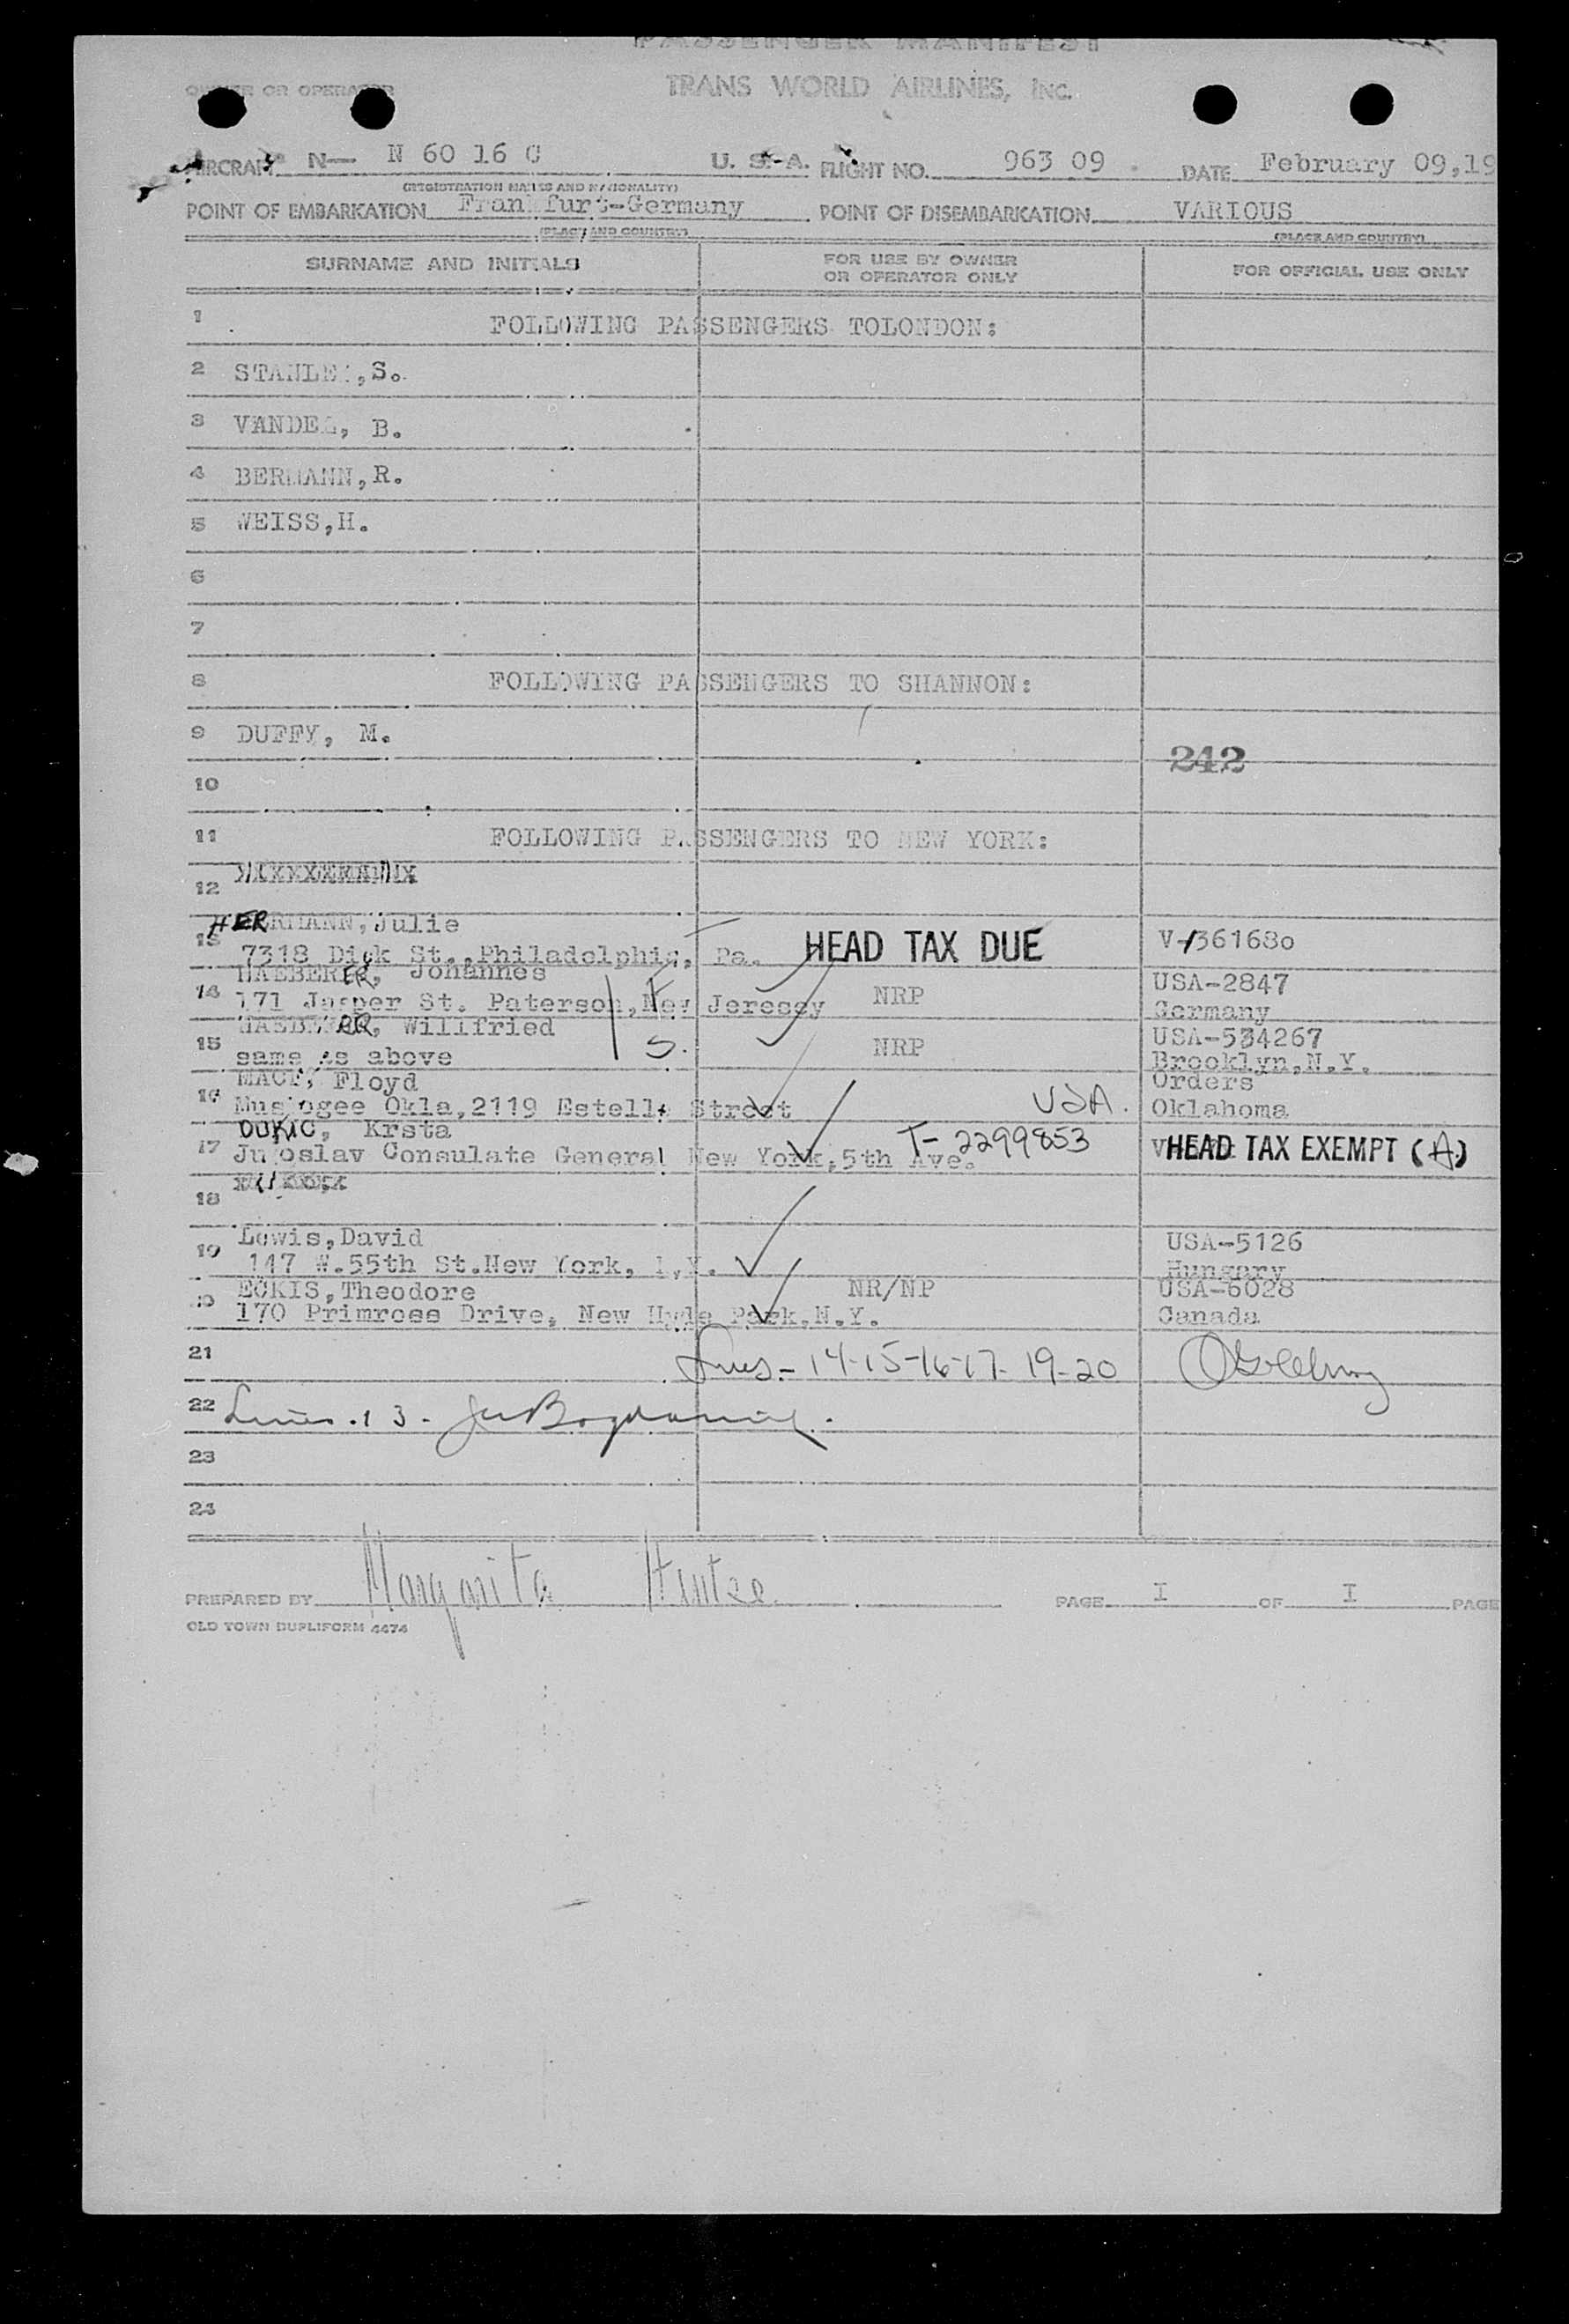 PASSENGER MANIFEST
OWNER OR OPERATOR TRANS WORLD AIRLINES, INC.
AIRCRAFT N— N 60 16 C U. S. A. FLIGHT NO. 963 09 DATE February 09,19
(REGISTRATION MARKS AND NATIONALITY)
POINT OF EMBARKATION Frankfurt-Germany POINT OF DISEMBARKATION VARIOUS
(PLACE AND COUNTRY) (PLACE AND COUNTRY)
SURNAME AND INITIALS FOR USE BY OWNER OR OPERATOR ONLY FOR OFFICIAL USE ONLY
1 FOLLOWING PASSENGERS TOLONDON:
2 STANLEY,S.
3 VANDEL, B.
4 BERMANN,R.
5 WEISS,H.
6
7
8 FOLLOWING PASSENGERS TO SHANNON:
9 DUFFY, M.
242
10
11 FOLLOWING PASSENGERS TO NEW YORK:
12
13 HERRMANN, Julie
7318 Dick St.,Philadelphia, Pa. HEAD TAX DUE V-1361680
14 HAEBERER, Johannes USA-2847
171 Jasper St. Paterson,New Jeresey NRP Germany
15 HAEBERER, Willfried USA-534267
same as above S. NRP Brooklyn,N.Y.
16 MACE, Floyd Orders
Muskogee Okla,2119 Estelle Street USA. Oklahoma
17 DUKIC, Krsta T-2299853
Jugoslav Consulate General New York,5th Ave. HEAD TAX EXEMPT (A)
18
19 Lewis,David USA-5126
147 W.55th St.New York, N.Y. Hungary
20 ECKIS,Theodore NR/NP USA-6028
170 Primrose Drive, New Hyde Park,N.Y. Canada
21 Lines- 14-15-16-17- 19-20
22 Lines. 13 -
23
24
PREPARED BY Margarita
PAGE I OF I PAGE
OLD TOWN DUPLIFORM 4474